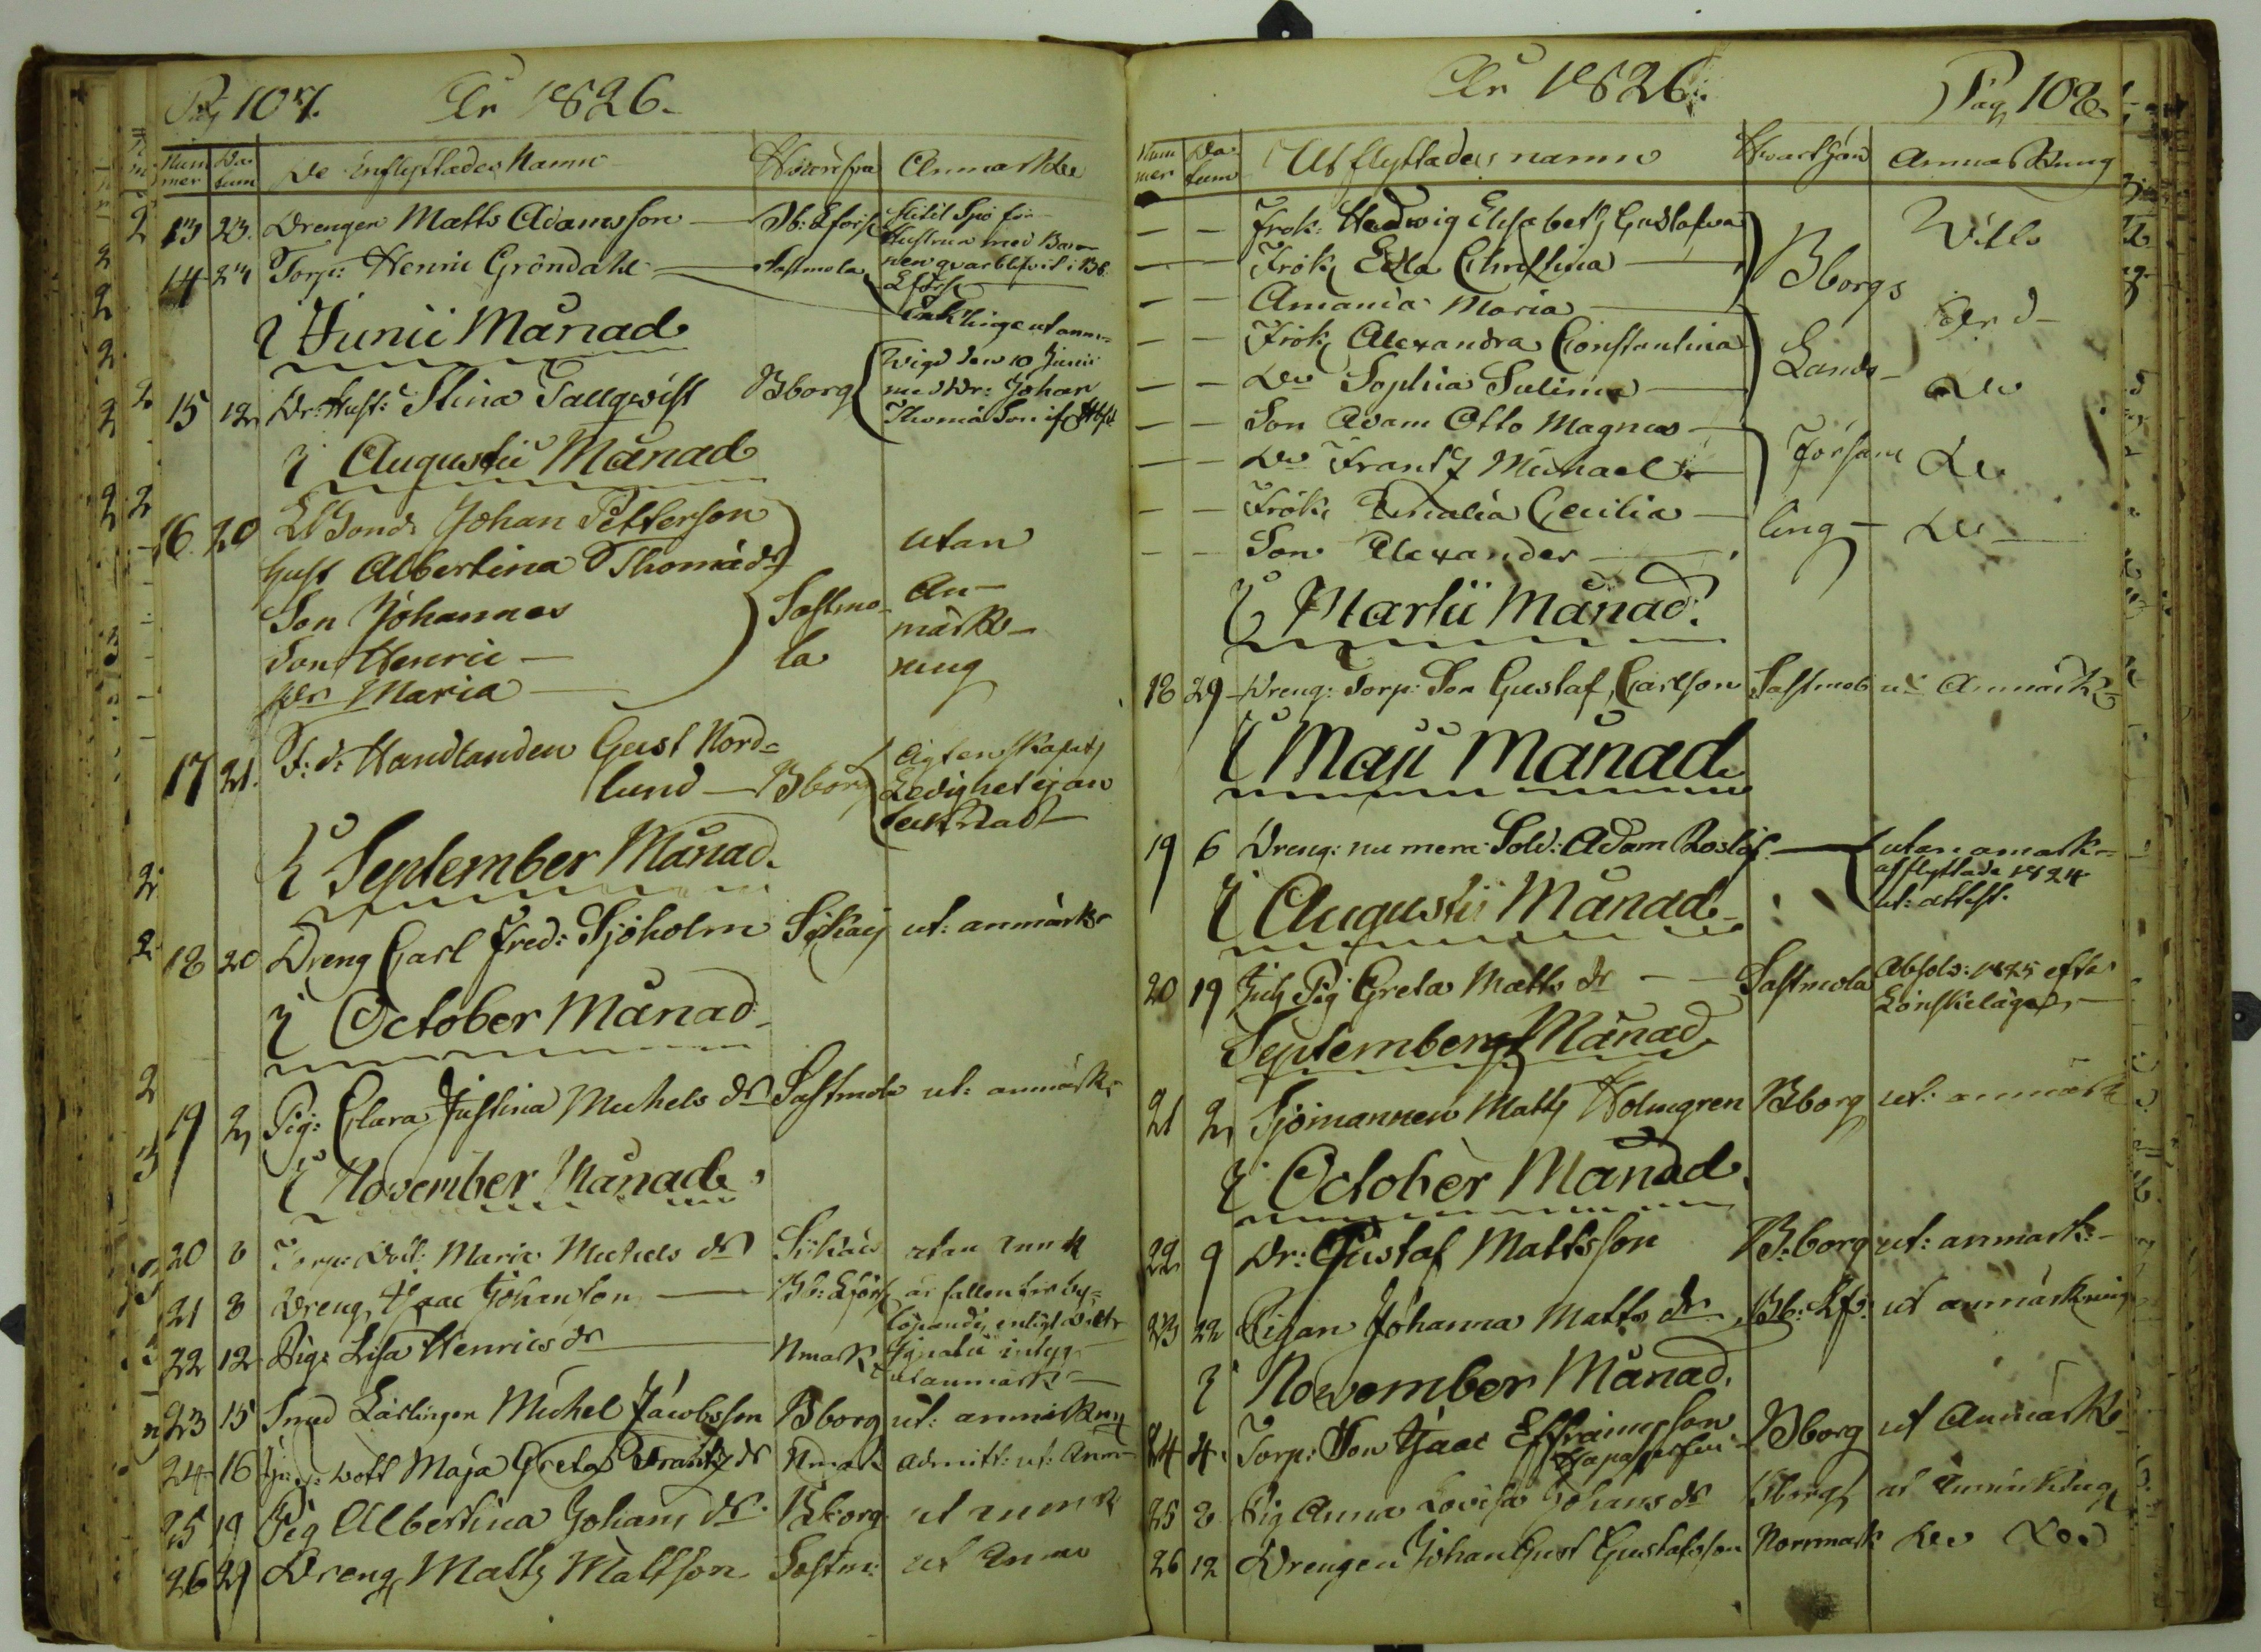 Pag 107. År 1826.
Num mer Da tum De Inflyttades Namn Hvarifrån Anmärkn
13 23. Drengen Matts Adamsson Bb: Lförs
Hustrun med Bar-
nen qvarblifvit i Bb.
Lförs
14 24 Torp: Henric Gröndahl Sastmola
I Junii Månad
15 12 Dr: Hust: Stina Tallqvist Bborg
Wigd den 10 Junii
med Dr: Johan
I Augustii Månad
16. 20 Johan Petterson
Hust Albertina Thomædr
Son Johannes
Son Henric
Dr Maria
Sastmo-
la
utan
An-
märk-
ning
17 21. F: d: Handlanden Gust Nord-
lund Bborg
Ägtenskaps
Ledighet ej an
I September Månad.
18 20 Dreng Carl Fred: Sjöholm ut: anmärk
I October Månad
19 2 Pig: Clara Justina Michels dr Sastmola ut: anmärk
I November Månad
20 8 Torp: Dott: Maria Michels dr utan anm
21 8 Dreng Isaac Johanson Bb: Lförs är fallen för
22 12 Pig: Lisa Henrics dr Nmark
utanmärk
23 15 Smed Lärlingen Michel Jacobsson Bborg ut: anmärkng
24 16 Dott Maja Greta Frants dr Nmark admitt: ut: Anm
25 19 Pig Albertina Johans dr Bborg ut anm
26 29 Dreng Matts Mattson Sastm: ut Anm
År 1826. Pag 108
Num mer Da tum Utflyttades namn Hwarthän Anmärkning
Frök: Hedwig Elisabeth Gustafva
Frök Edla Christina
Amania Maria
Frök Alexandra Constantina
Do Sophia
Son Adam Otto Magnus
Do Frantz Michael
Frök Amalia Cecilia
Son Alexander
Bborgs
Lands-
församl
ling
I Martii Månad.
18 29 Dreng: Torp: Son Gustaf Carlson Sastmol ut Anmärk
I Maji Månad
19 6 Dreng: nu mera Sold: Adam Roslöf
utan anmärk-
afflyttade 1824
ut: attest.
I Augustii Månad
20 19 Pig Greta Matts dr Sastmola Absolv: 1825 efter
Lönskeläger
September Månad
21 2 Sjömannen Matts Holmgren Bborg ut: anmärk
I October Månad.
22 9 Dr: Gustaf Mattsson B:borg ut: anmärk:
23 22 Pigan Johanna Matts dr Bb: Lf: ut anmärkning
I November Månad.
24 4. Torp: Son Isaac Effraimsson Bborg ut Anmärk
25 8 Pig Anna Lovisa Johans dr Bborg ut Anmärkng
26 12 Drengen Johan Gust Gustafsson Norrmark Do Do